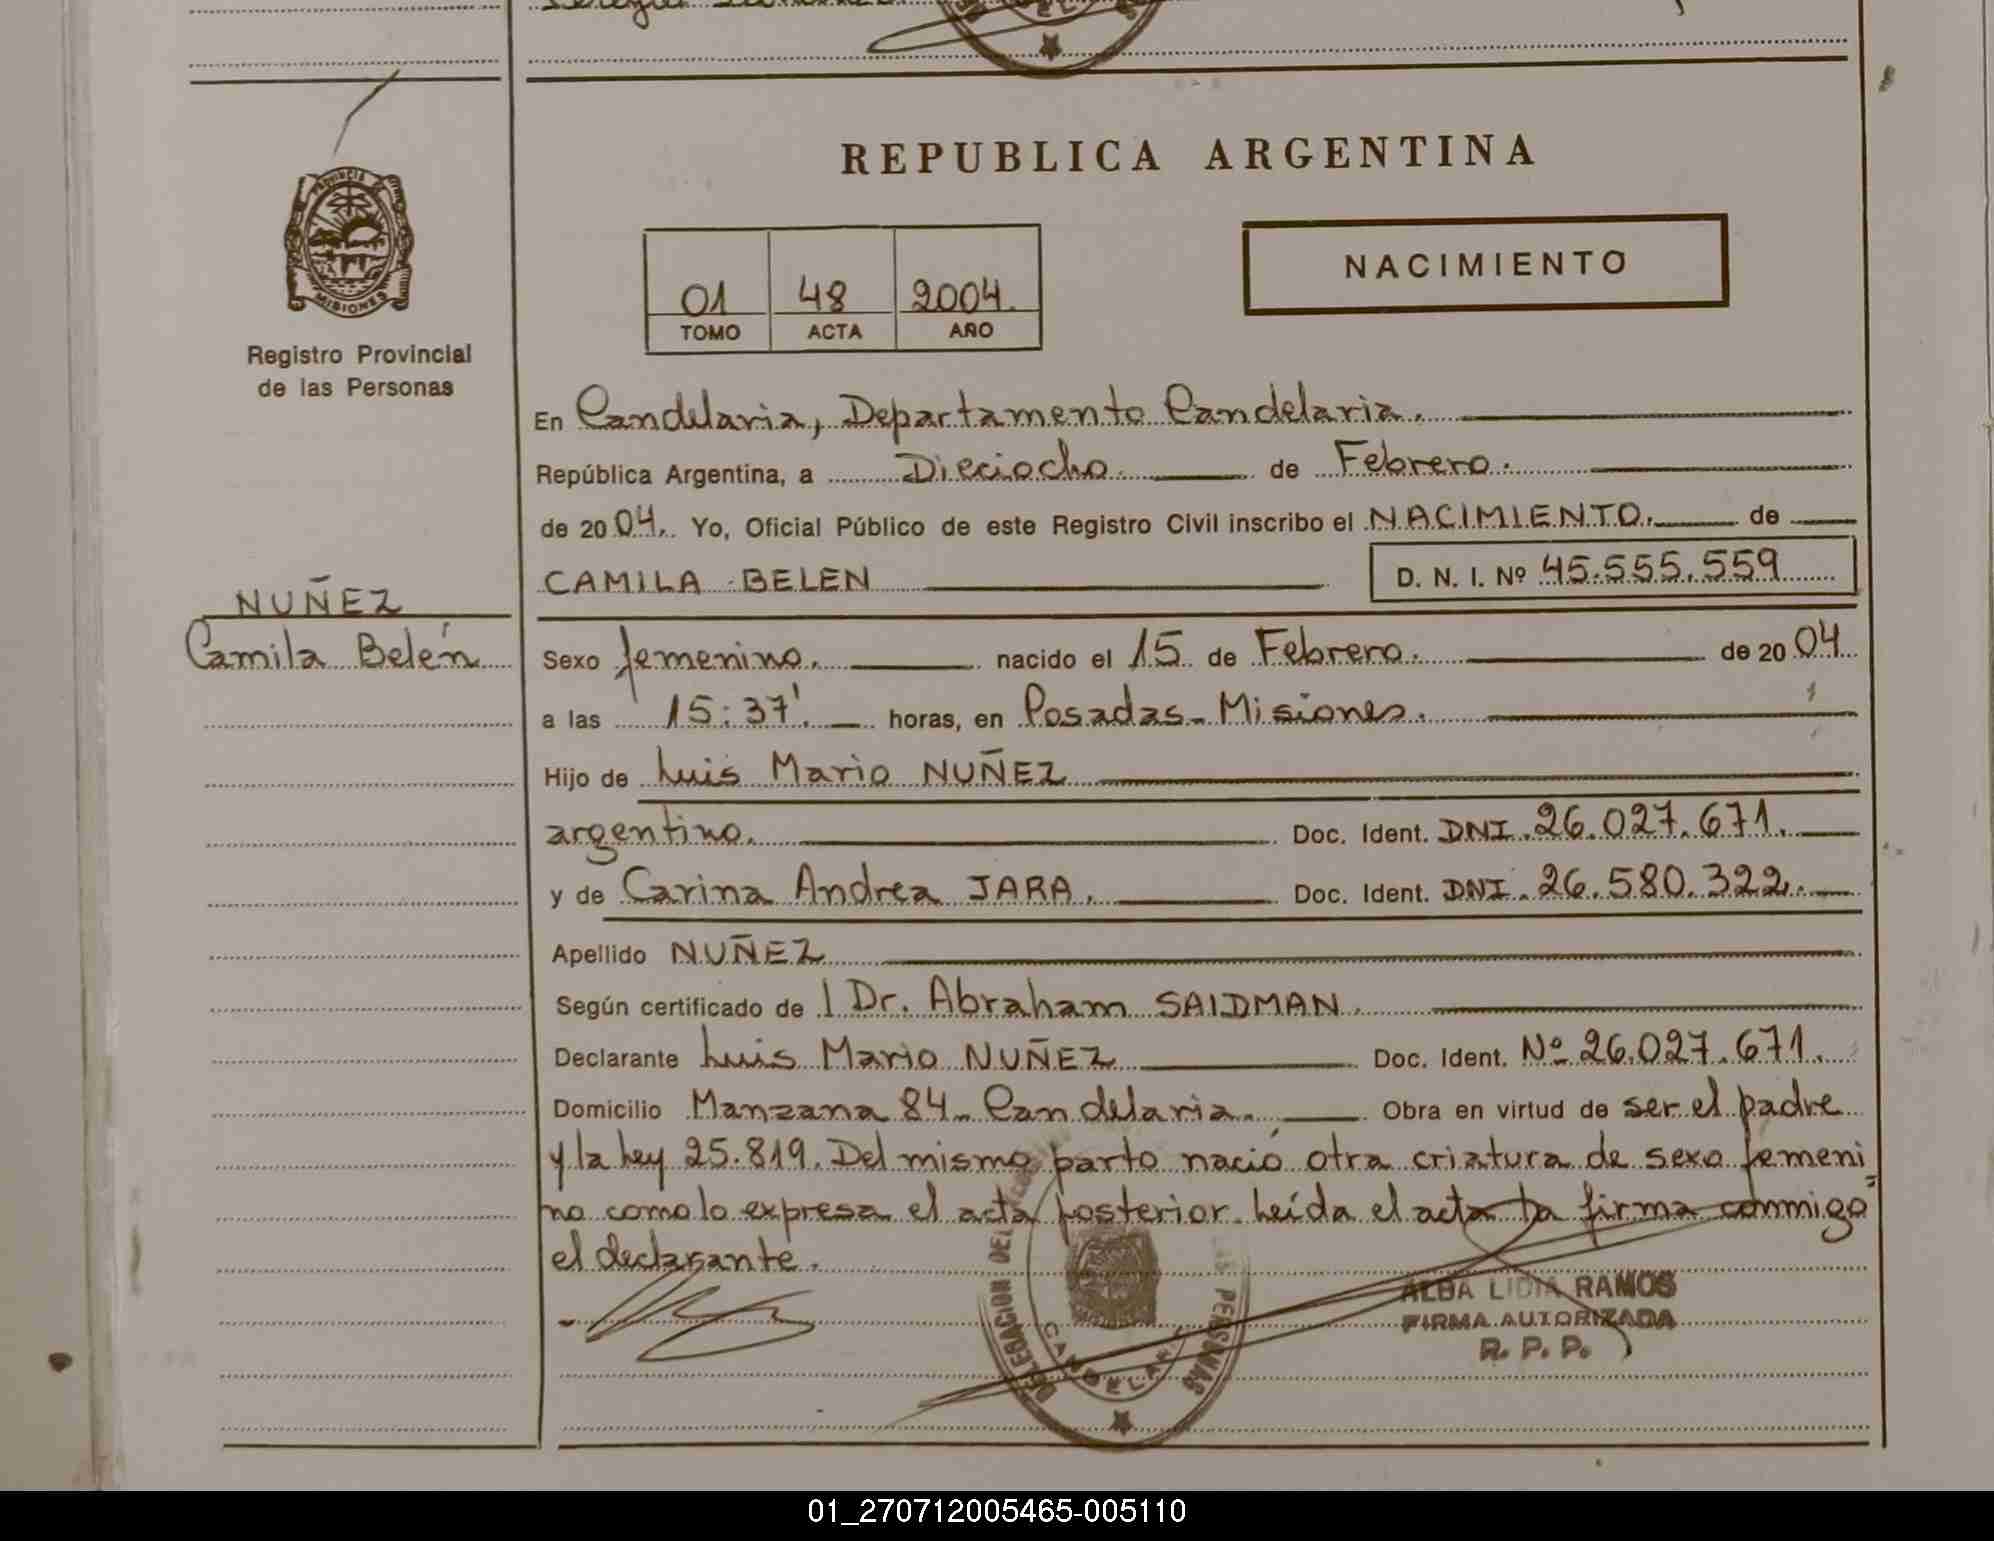 REPUBLICA ARGENTINA
PROVINCIA DE
MISIONES
Registro Provincial
de las Personas
NACIMIENTO
01 48 2004.
TOMO ACTA AÑO
En Candelaria, Departamento Candelaria.
República Argentina, a Dieciocho. de Febrero.
de 2004. Yo, Oficial Público de este Registro Civil inscribo el NACIMIENTO. de
CAMILA BELEN D. N. I. Nº 45.555.559
NUÑEZ
Camila Belén
Sexo femenino. nacido el 15 de Febrero. de 2004
a las 15:37'. horas, en Posadas - Misiones.
Hijo de Luis Mario NUÑEZ
argentino. Doc. Ident. DNI. 26.027.671.
y de Carina Andrea JARA. Doc. Ident. DNI. 26.580.322.
Apellido NUÑEZ
Según certificado de l Dr. Abraham SAIDMAN.
Declarante Luis Mario NUÑEZ Doc. Ident. Nº 26.027.671.
Domicilio Manzana 84 - Candelaria. Obra en virtud de ser el padre
y la Ley 25.819. Del mismo parto nació otra criatura de sexo femeni
no como lo expresa el acta posterior. Leída el acta la firma conmigo
el declarante.
ALBA LIDIA RAMOS
FIRMA AUTORIZADA
R. P. P.
DELEGACION DEL PERSONAS
CANDELARIA
01_270712005465-005110